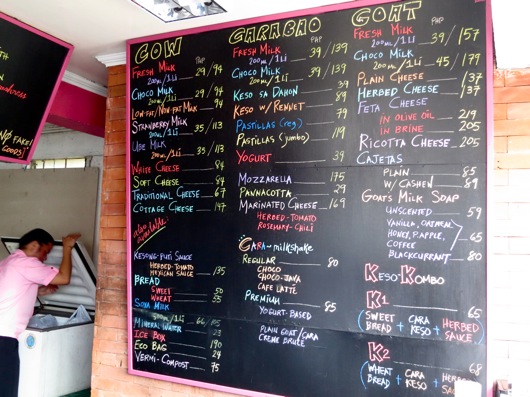 COW
PHP
FRESH MILK
200ML/1Li 29/94
CHOCO MILK
200ML/1Li 29/94
LOW-FAT/NON-FAT MILK 94
STRAWBERRY MILK
200ML/1Li 35/113
MILK
200ML/1Li 35/113
WHITE CHEESE 84
SOFT CHEESE 84
TRADITIONAL CHEESE 67
COTTAGE CHEESE 147
also Available
KESONG-PUTI SAUCE
HERBED-TOMATO
MEXICAN SAUCE 135
BREAD
SWEET 50
WHEAT 55
SOYA MILK
MINERAL WATER
ICE BOX
ECO BAG 190
VERMI-COMPOST 75
CARABAO
PHP
FRESH MILK
200ML/1Li 39/139
CHOCO MILK
200ML/1Li 39/139
KESO SA DAHON 89
KESO W/ RENNET 89
PASTILLAS (reg)
PASTILLAS (jumbo) 119
YOGURT 39
MOZZARELLA 175
PANNACOTTA 29
MARINATED CHEESE 169
HERBED-TOMATO
ROSEMARY-CHILI
CARA-milkshake
REGULAR 80
CHOCO
CHOCO-JAVA
CAFE LATTE
PREMIUM 85
YOGURT-BASED
PLAIN GOAT/CARA
CREME BRULE
GOAT
PHP
FRESH MILK
200ML/1Li 39/157
CHOCO MILK
200ML/1Li 45/177
PLAIN CHEESE 137
HERBED CHEESE 137
FETA CHEESE
IN OLIVE OIL
IN BRINE 205
RICOTTA CHEESE 205
CAJETAS
PLAIN 85
W/ CASHEW 89
GOAT'S MILK SOAP
UNSCENTED 59
VANILLA, OATMEAL,
HONEY, P.APPLE, 65
COFFEE
BLACKCURRANT 80
KESO KOMBO
K1 65
(SWEET BREAD + CARA KESO + HERBED SAUCE)
K2 68
(WHEAT BREAD + CARA KESO + HERBED